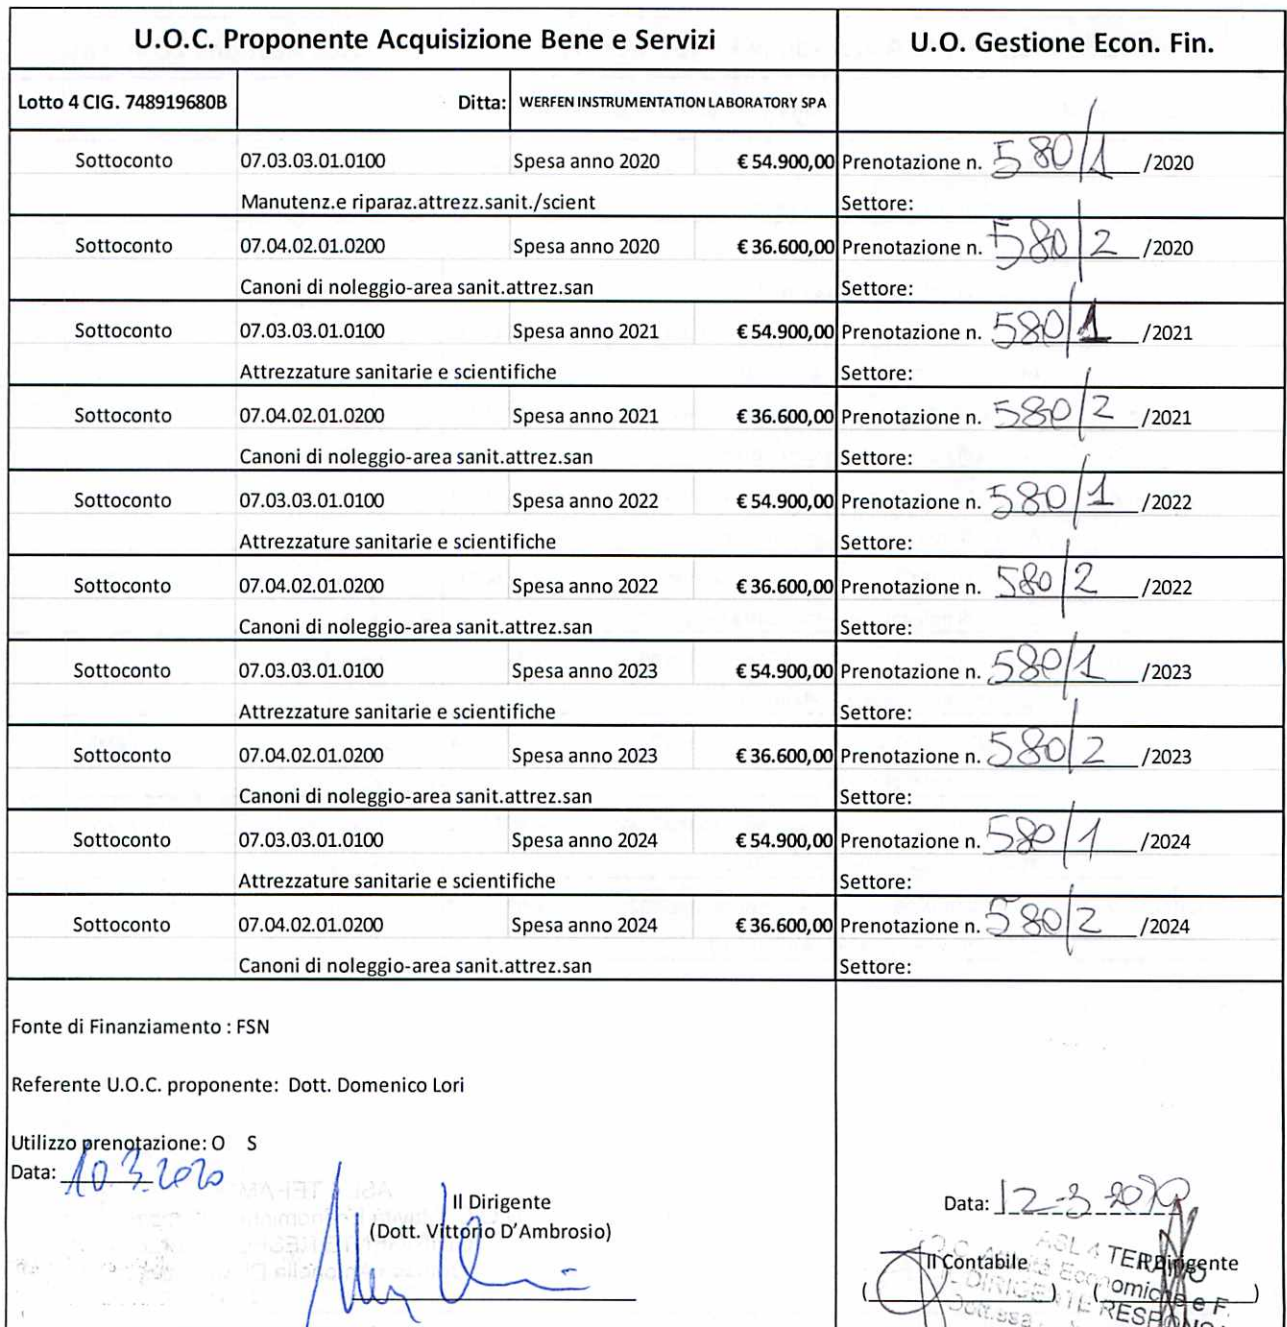 U.O.C. Proponente Acquisizione Bene e Servizi U.O. Gestione Econ. Fin.
Lotto 4 CIG. 748919680B Ditta: WERFEN INSTRUMENTATION LABORATORY SPA
Sottoconto 07.03.03.01.0100 Spesa anno 2020 € 54.900,00 Prenotazione n. 580/1 /2020
Manutenz.e riparaz.attrezz.sanit./scient Settore:
Sottoconto 07.04.02.01.0200 Spesa anno 2020 € 36.600,00 Prenotazione n. 580/2 /2020
Canoni di noleggio-area sanit.attrez.san Settore:
Sottoconto 07.03.03.01.0100 Spesa anno 2021 € 54.900,00 Prenotazione n. 580/1 /2021
Attrezzature sanitarie e scientifiche Settore:
Sottoconto 07.04.02.01.0200 Spesa anno 2021 € 36.600,00 Prenotazione n. 580/2 /2021
Canoni di noleggio-area sanit.attrez.san Settore:
Sottoconto 07.03.03.01.0100 Spesa anno 2022 € 54.900,00 Prenotazione n. 580/1 /2022
Attrezzature sanitarie e scientifiche Settore:
Sottoconto 07.04.02.01.0200 Spesa anno 2022 € 36.600,00 Prenotazione n. 580/2 /2022
Canoni di noleggio-area sanit.attrez.san Settore:
Sottoconto 07.03.03.01.0100 Spesa anno 2023 € 54.900,00 Prenotazione n. 580/1 /2023
Attrezzature sanitarie e scientifiche Settore:
Sottoconto 07.04.02.01.0200 Spesa anno 2023 € 36.600,00 Prenotazione n. 580/2 /2023
Canoni di noleggio-area sanit.attrez.san Settore:
Sottoconto 07.03.03.01.0100 Spesa anno 2024 € 54.900,00 Prenotazione n. 580/1 /2024
Attrezzature sanitarie e scientifiche Settore:
Sottoconto 07.04.02.01.0200 Spesa anno 2024 € 36.600,00 Prenotazione n. 580/2 /2024
Canoni di noleggio-area sanit.attrez.san Settore:
Fonte di Finanziamento : FSN
Referente U.O.C. proponente: Dott. Domenico Lori
Utilizzo prenotazione: O S
Data: 10.3.2020
Il Dirigente
(Dott. Vittorio D'Ambrosio)
Data: 12-3-2020
Il Contabile Il Dirigente
ASL 4 TERAMO
Economiche e F.
DIRIGENTE
Dott.ssa